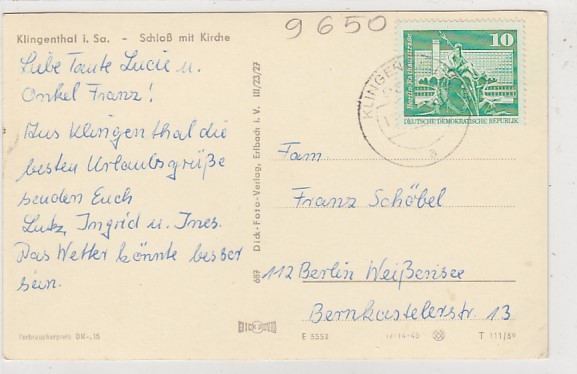 Klingenthal i. Sa. - Schloß mit Kirche
9650
Liebe Tante Lucie u.
Onkel Franz!
Aus Klingenthal die
besten Urlaubsgrüße
senden Euch
Lutz, Ingrid u. Ines.
Das Wetter könnte besser
sein.
Verbraucherpreis DM -,15
687 Dick-Foto-Verlag, Erlbach i. V. III/23/27
10
Berlin Rathausstraße
DEUTSCHE DEMOKRATISCHE REPUBLIK
KLINGEN
a
Fam.
Franz Schöbel
112 Berlin Weißensee
Bernkastelerstr. 13
DICK FOTO
E 5553
T 111/59